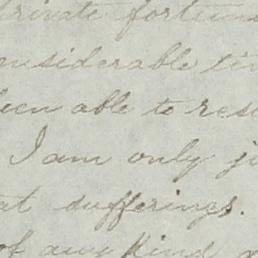 private fortun
onsiderable ti
been able to res
I am only j
at sufferings.
of any kind